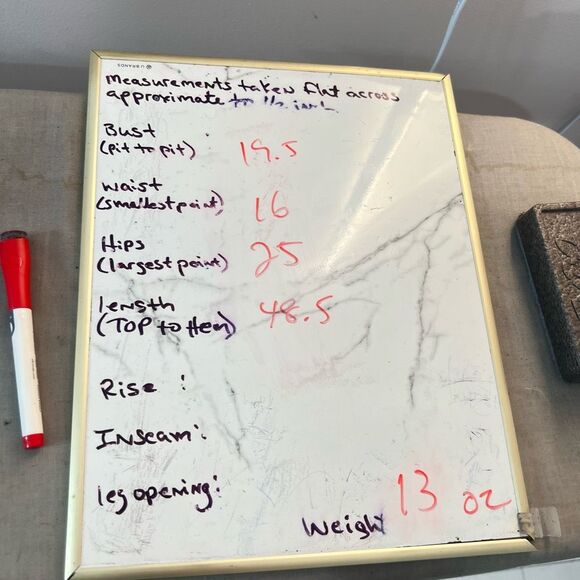 U BRANDS
measurements taken flat across
approximate to 1/2 inch
Bust :
(pit to pit) 19.5
waist
(smallest point) 16
Hips
(largest point) 25
length
(TOP to Hem) 48.5
Rise :
Inseam:
leg opening:
13 oz
Weight